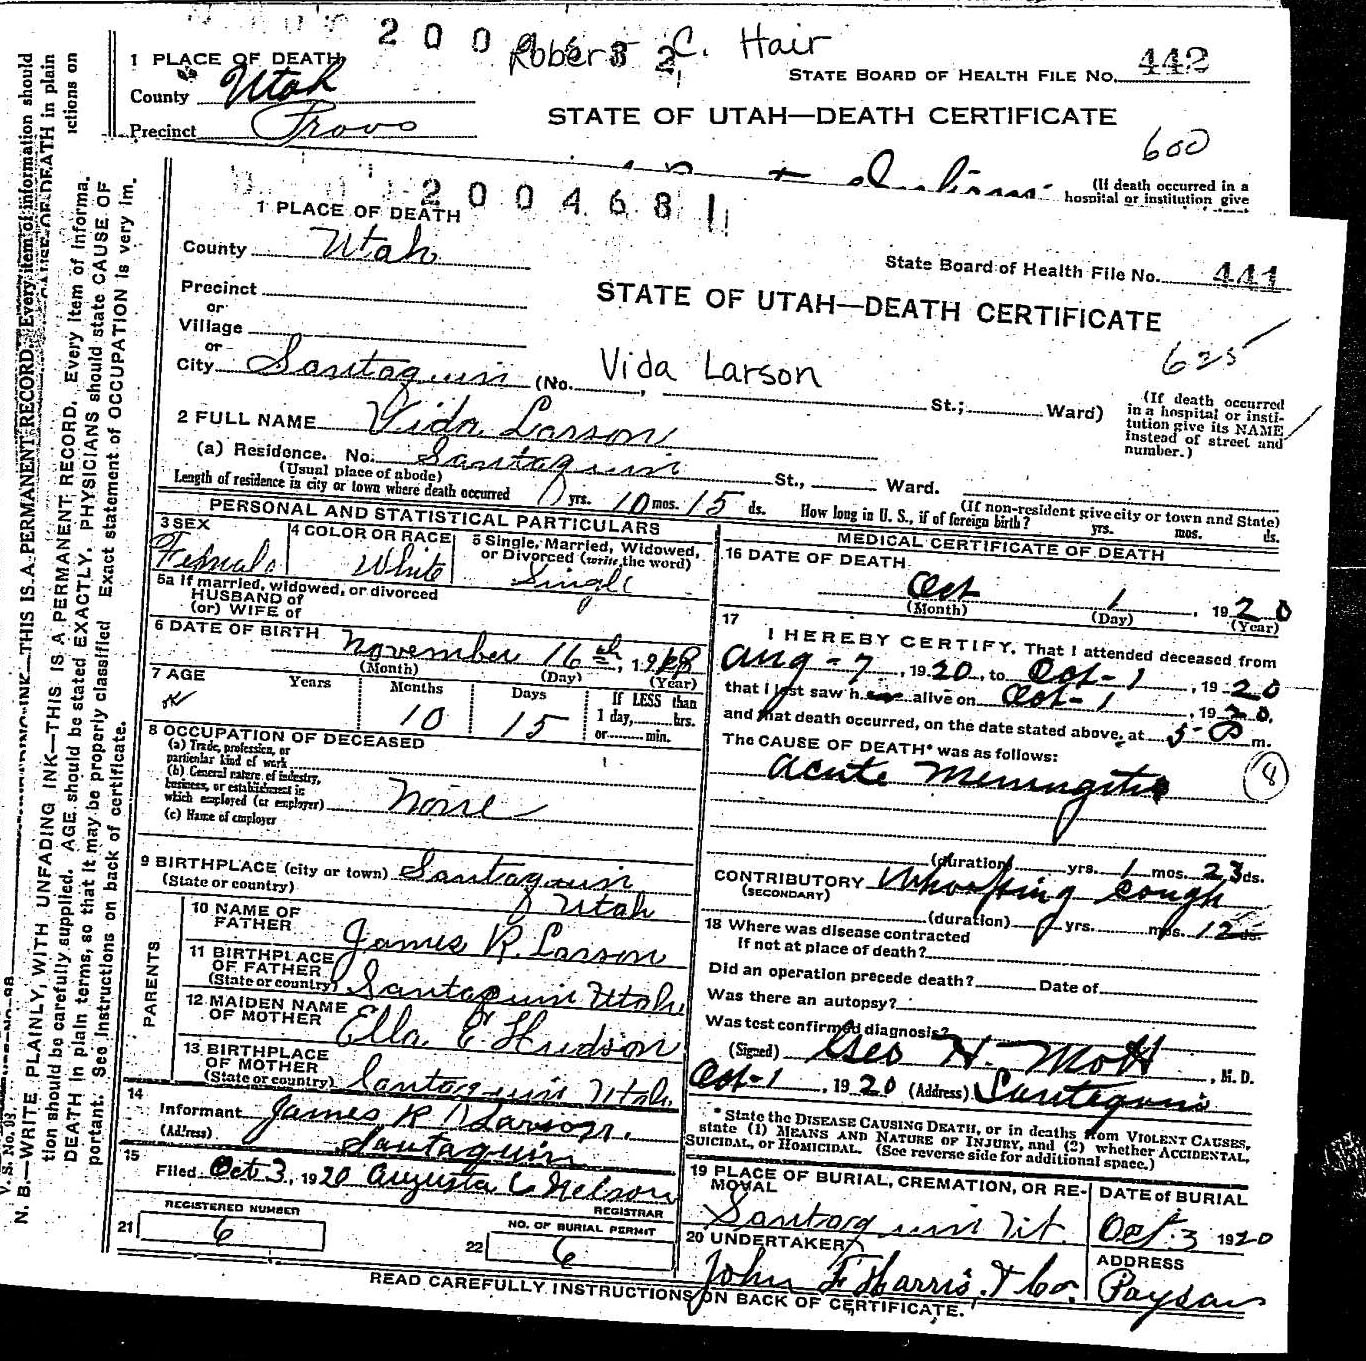 2 0 0
Robert C. Hair
1 PLACE OF DEATH
STATE BOARD OF HEALTH FILE NO. 442
County Utah
STATE OF UTAH—DEATH CERTIFICATE
Precinct Provo
600
(If death occurred in a
hospital or institution give
2 0 0 4 6 8 1
1 PLACE OF DEATH
County Utah
State Board of Health File No. 441
Precinct
or
STATE OF UTAH—DEATH CERTIFICATE
Village
or
625
City Santaquin (No. , St.; Ward)
Vida Larson
(If death occurred
in a hospital or insti-
tution give its NAME
instead of street and
number.)
2 FULL NAME Vida Larson
(a) Residence. No. Santaquin St., Ward.
(Usual place of abode)
(If non-resident give city or town and State)
Length of residence in city or town where death occurred yrs. 10 mos. 15 ds. How long in U. S., if of foreign birth? yrs. mos. ds.
PERSONAL AND STATISTICAL PARTICULARS
3 SEX
Female
4 COLOR OR RACE
White
5 Single, Married, Widowed,
or Divorced (write the word)
Single
5a If married, widowed, or divorced
HUSBAND of
(or) WIFE of
6 DATE OF BIRTH November 16th, 19
(Month) (Day) (Year)
7 AGE Years Months Days If LESS than
1 day, hrs.
or min.
10 15
8 OCCUPATION OF DECEASED
(a) Trade, profession, or
particular kind of work
(b) General nature of industry,
business, or establishment in
which employed (or employer) None
(c) Name of employer
9 BIRTHPLACE (city or town) Santaquin
(State or country) Utah
PARENTS
10 NAME OF
FATHER James R. Larson
11 BIRTHPLACE
OF FATHER
(State or country) Santaquin Utah
12 MAIDEN NAME
OF MOTHER Ella E. Hudson
13 BIRTHPLACE
OF MOTHER
(State or country) Santaquin Utah
14
Informant James R Larson.
(Address) Santaquin
15
Filed Oct 3, 1920 Augusta C Nelson
REGISTRAR
21 REGISTERED NUMBER
6
22 NO. OF BURIAL PERMIT
6
MEDICAL CERTIFICATE OF DEATH
16 DATE OF DEATH
Oct 1, 1920
(Month) (Day) (Year)
17
I HEREBY CERTIFY, That I attended deceased from
Aug - 7, 1920, to Oct - 1, 1920
that I last saw h er alive on Oct - 1, 1920,
and that death occurred, on the date stated above, at 5 P m.
The CAUSE OF DEATH* was as follows:
Acute Meningitis
8
(duration) yrs. 1 mos. 23 ds.
CONTRIBUTORY Whooping Cough
(SECONDARY)
(duration) yrs. mos. 12 ds.
18 Where was disease contracted
if not at place of death?
Did an operation precede death? Date of
Was there an autopsy?
Was test confirmed diagnosis?
(Signed) Geo H. Mott, M. D.
Oct - 1, 1920 (Address) Santaquin
* State the DISEASE CAUSING DEATH, or in deaths from VIOLENT CAUSES,
state (1) MEANS AND NATURE OF INJURY, and (2) whether ACCIDENTAL,
SUICIDAL, or HOMICIDAL. (See reverse side for additional space.)
19 PLACE OF BURIAL, CREMATION, OR RE-
MOVAL
Santaquin Ut.
DATE of BURIAL
Oct. 3 1920
20 UNDERTAKER
John F Harris, & Co.
ADDRESS
Payson
READ CAREFULLY INSTRUCTIONS ON BACK OF CERTIFICATE.
N. B.—WRITE PLAINLY, WITH UNFADING INK—THIS IS A PERMANENT RECORD. Every item of informa-
tion should be carefully supplied. AGE should be stated EXACTLY. PHYSICIANS should state CAUSE OF
DEATH in plain terms, so that it may be properly classified. Exact statement of OCCUPATION is very im-
portant. See instructions on back of certificate.